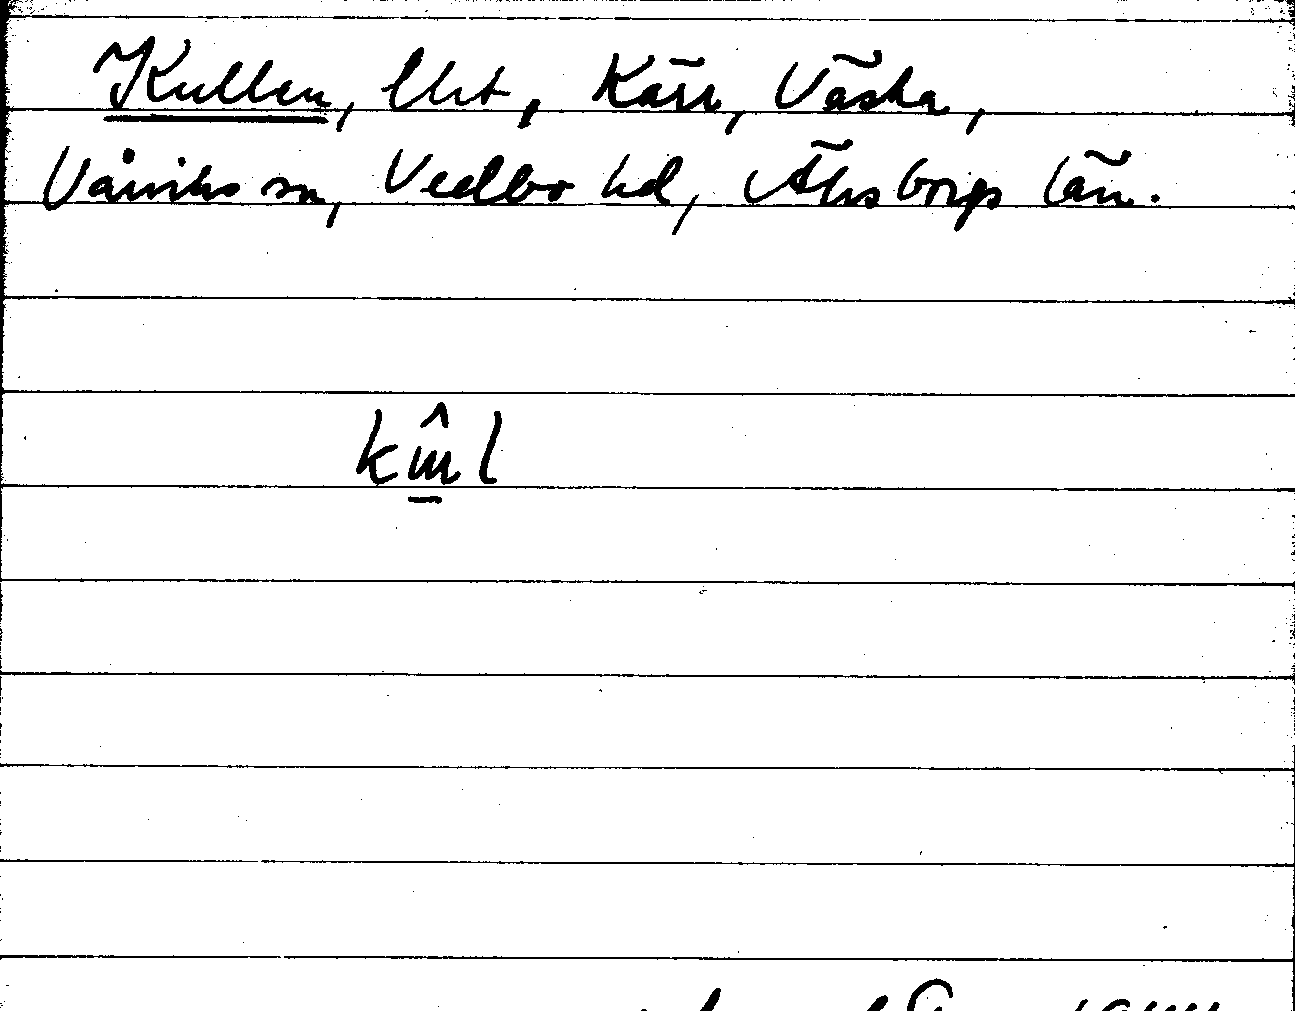 Kullen, lht, Kärr, Västra,
Vårviks sn, Vedbo hd, Älvsborgs län.